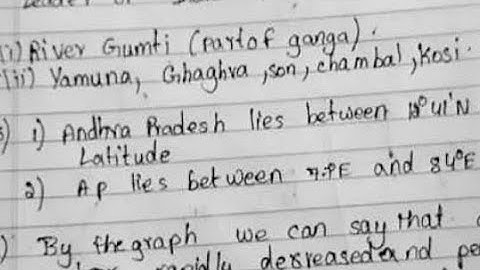 (i) River Gumti (part of ganga).
(ii) Yamuna, Ghaghra, son, chambal, Kosi.
1) Andhra Pradesh lies between 41'N
Latitude
2) AP lies between and 84°E
By the graph we can say that
desreased and